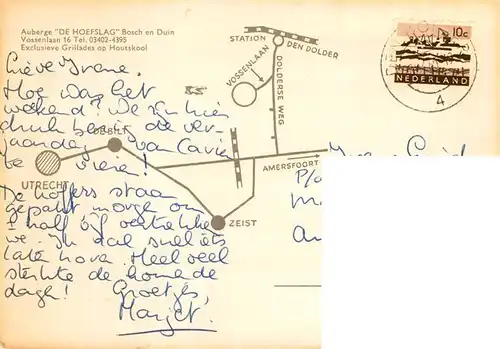 Auberge "DE HOEFSLAG" Bosch en Duin
Vossenlaan 16 Tel. 03402-4395
Exclusieve Grillades op Houtskool
STATION
DEN DOLDER
VOSSENLAAN
DOLDERSE WEG
DE BILT
UTRECHT
AMERSFOORT
ZEIST
10c
NEDERLAND
4
Lieve Yvonne.
Hoe was het
weekend? We zijn hier
druk bezig de ver-
jaardag van Carien
te vieren!
De koffers staan
gepakt morgen om
half vertrekken
we. Ik laat snel iets
later horen. Heel veel
sterkte de komende
dagen! Groetjes,
Marjet.
P/a